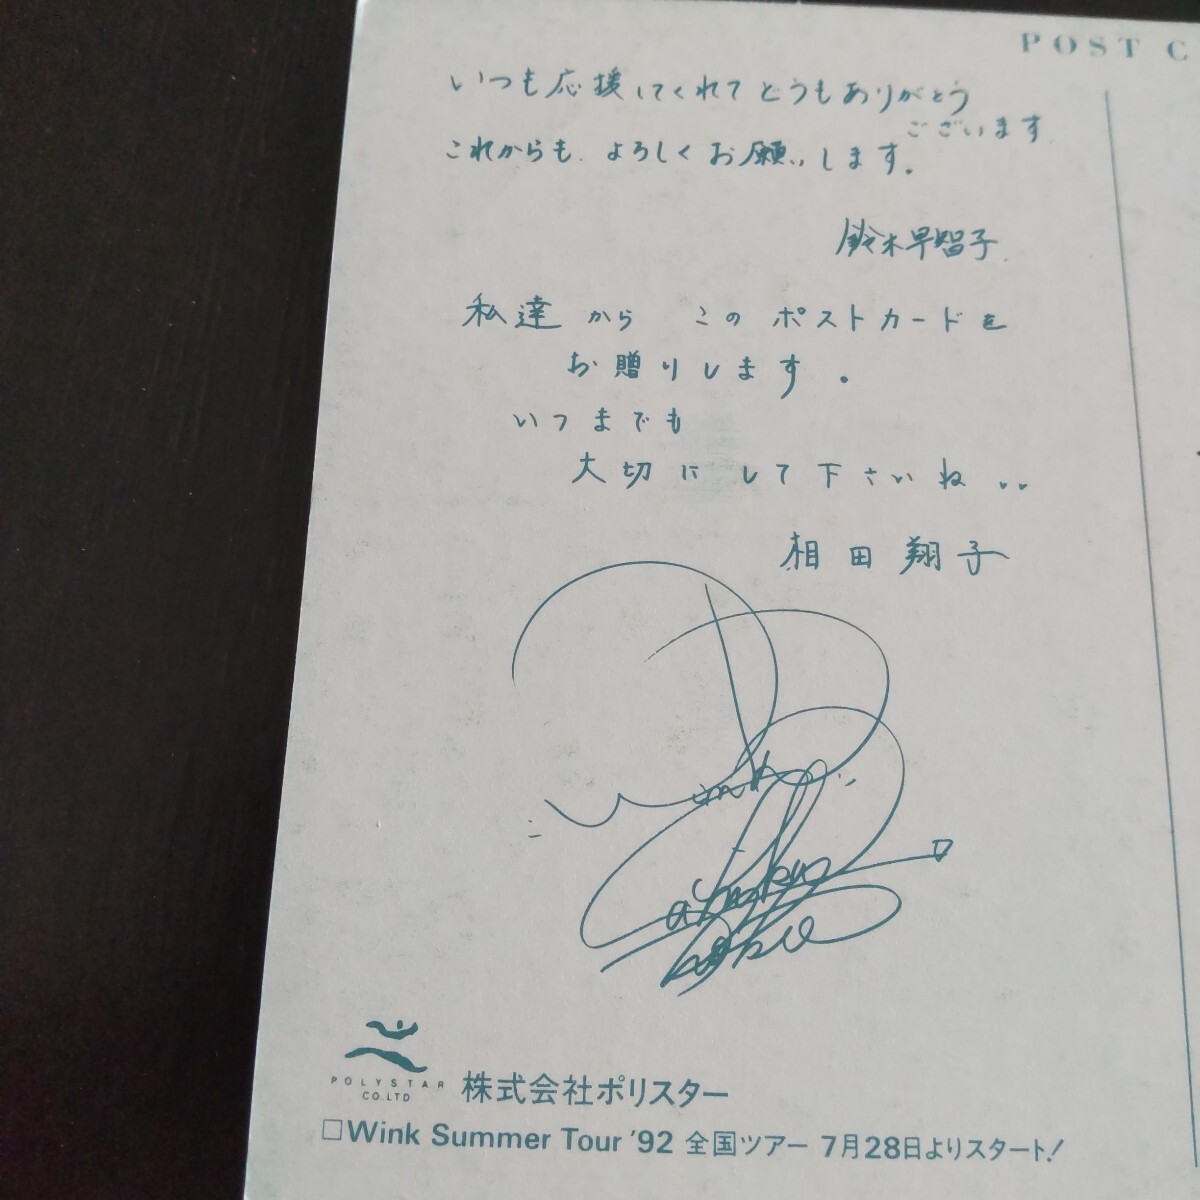 POST C
いつも応援してくれてどうもありがとう
ございます
これからも、よろしくお願いします。
鈴木早智子
私達から このポストカードを
お贈りします。
いつまでも
大切にして下さいね..
相田翔子
Wink
Sachiko
Shoko
POLYSTAR
CO.LTD
株式会社ポリスター
□Wink Summer Tour '92 全国ツアー 7月28日よりスタート!